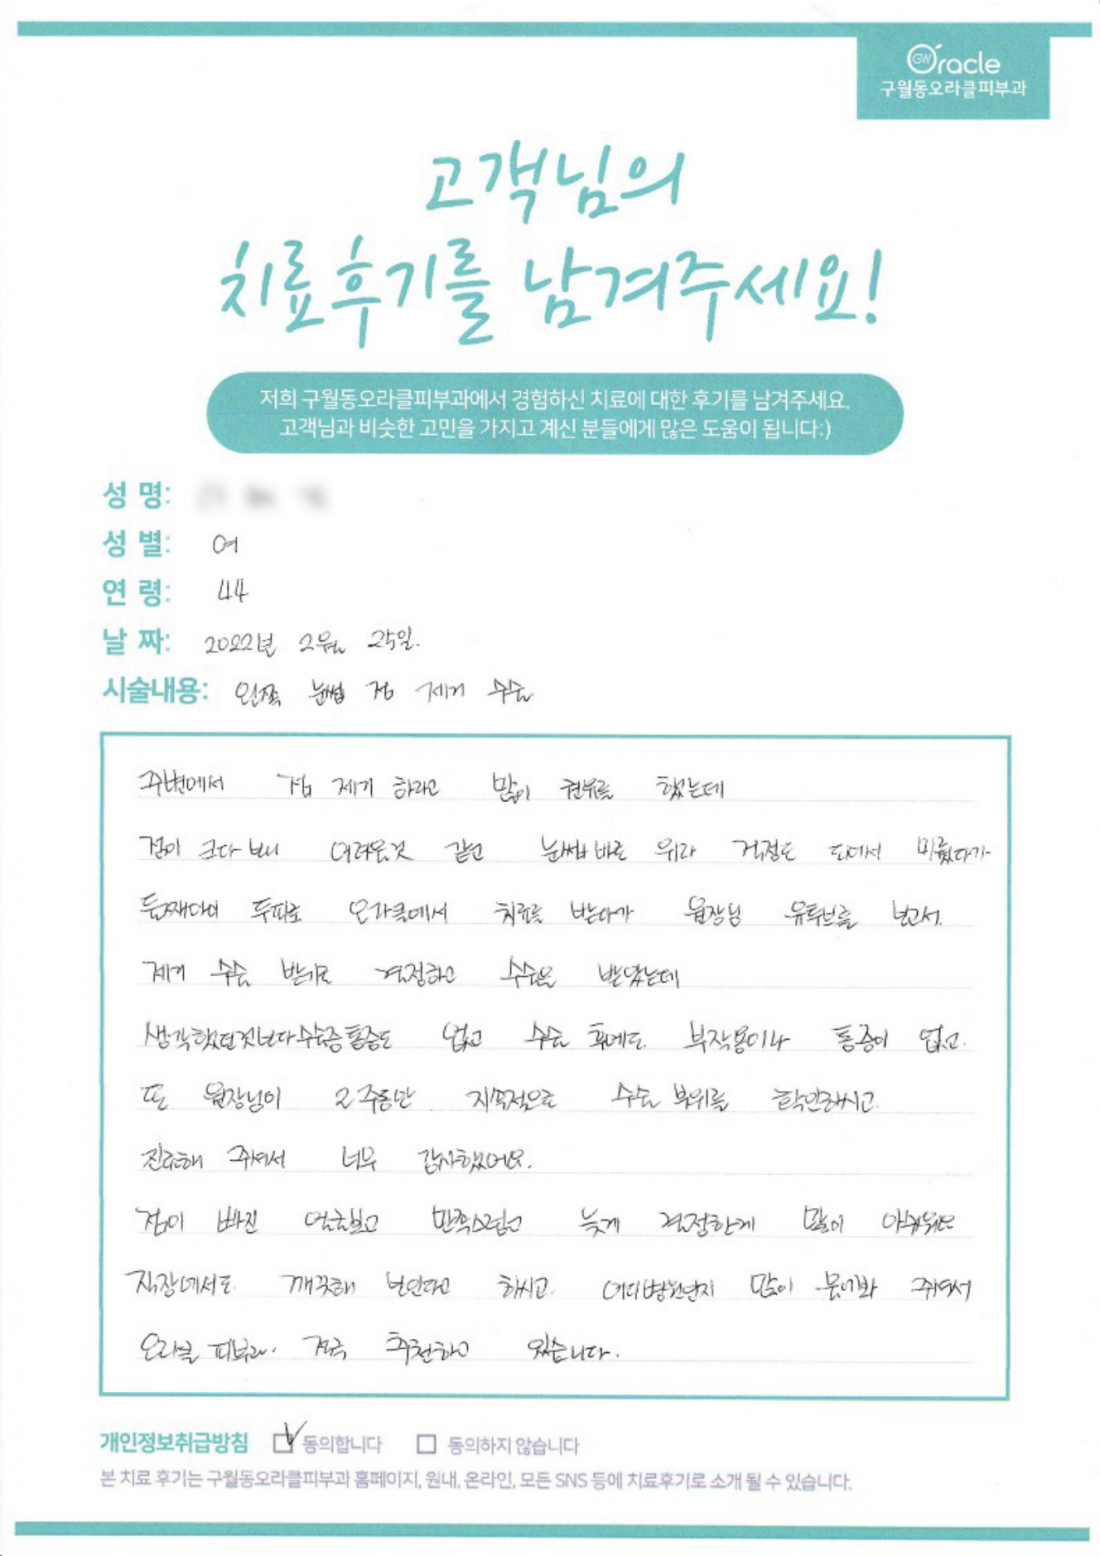 GW Oracle
구월동오라클피부과
고객님의
치료후기를 남겨주세요!
저희 구월동오라클피부과에서 경험하신 치료에 대한 후기를 남겨주세요.
고객님과 비슷한 고민을 가지고 계신 분들에게 많은 도움이 됩니다:)
성 명:
성 별: 여
연 령: 44
날 짜: 2022년 2월 25일.
시술내용: 왼쪽 눈썹 점 제거 수술
주변에서 점 제거 하라고 많이 권유를 했는데
점이 크다 보니 어려울것 같고 눈썹 바로 위라 걱정도 되어서 미뤘다가
둘째다이 두피로 오라클에서 치료를 받다가 원장님 유튜브를 보고서.
제거 수술 받기로 결정하고 수술을 받았는데
생각했던것보다 수술중 통증도 없고 수술 후에도 부작용이나 통증이 없고.
또 원장님이 2주동안 지속적으로 수술 부위를 확인해주시고.
진료해 주셔서 너무 감사했어요.
점이 빠진 얼굴보고 만족스럽고 늦게 결정한게 많이 아쉬워요
직장에서도 깨끗해 보인다고 하시고. 어디병원인지 많이 물어봐 주셔서
오라클 피부과. 적극 추천하고 있습니다.
개인정보취급방침 동의합니다 동의하지 않습니다
본 치료 후기는 구월동오라클피부과 홈페이지, 원내, 온라인, 모든 SNS 등에 치료후기로 소개 될 수 있습니다.